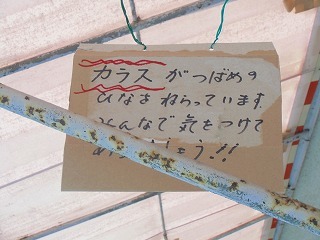 カラスがつばめの
ひなをねらっています
みんなで気をつけて
しょう!!